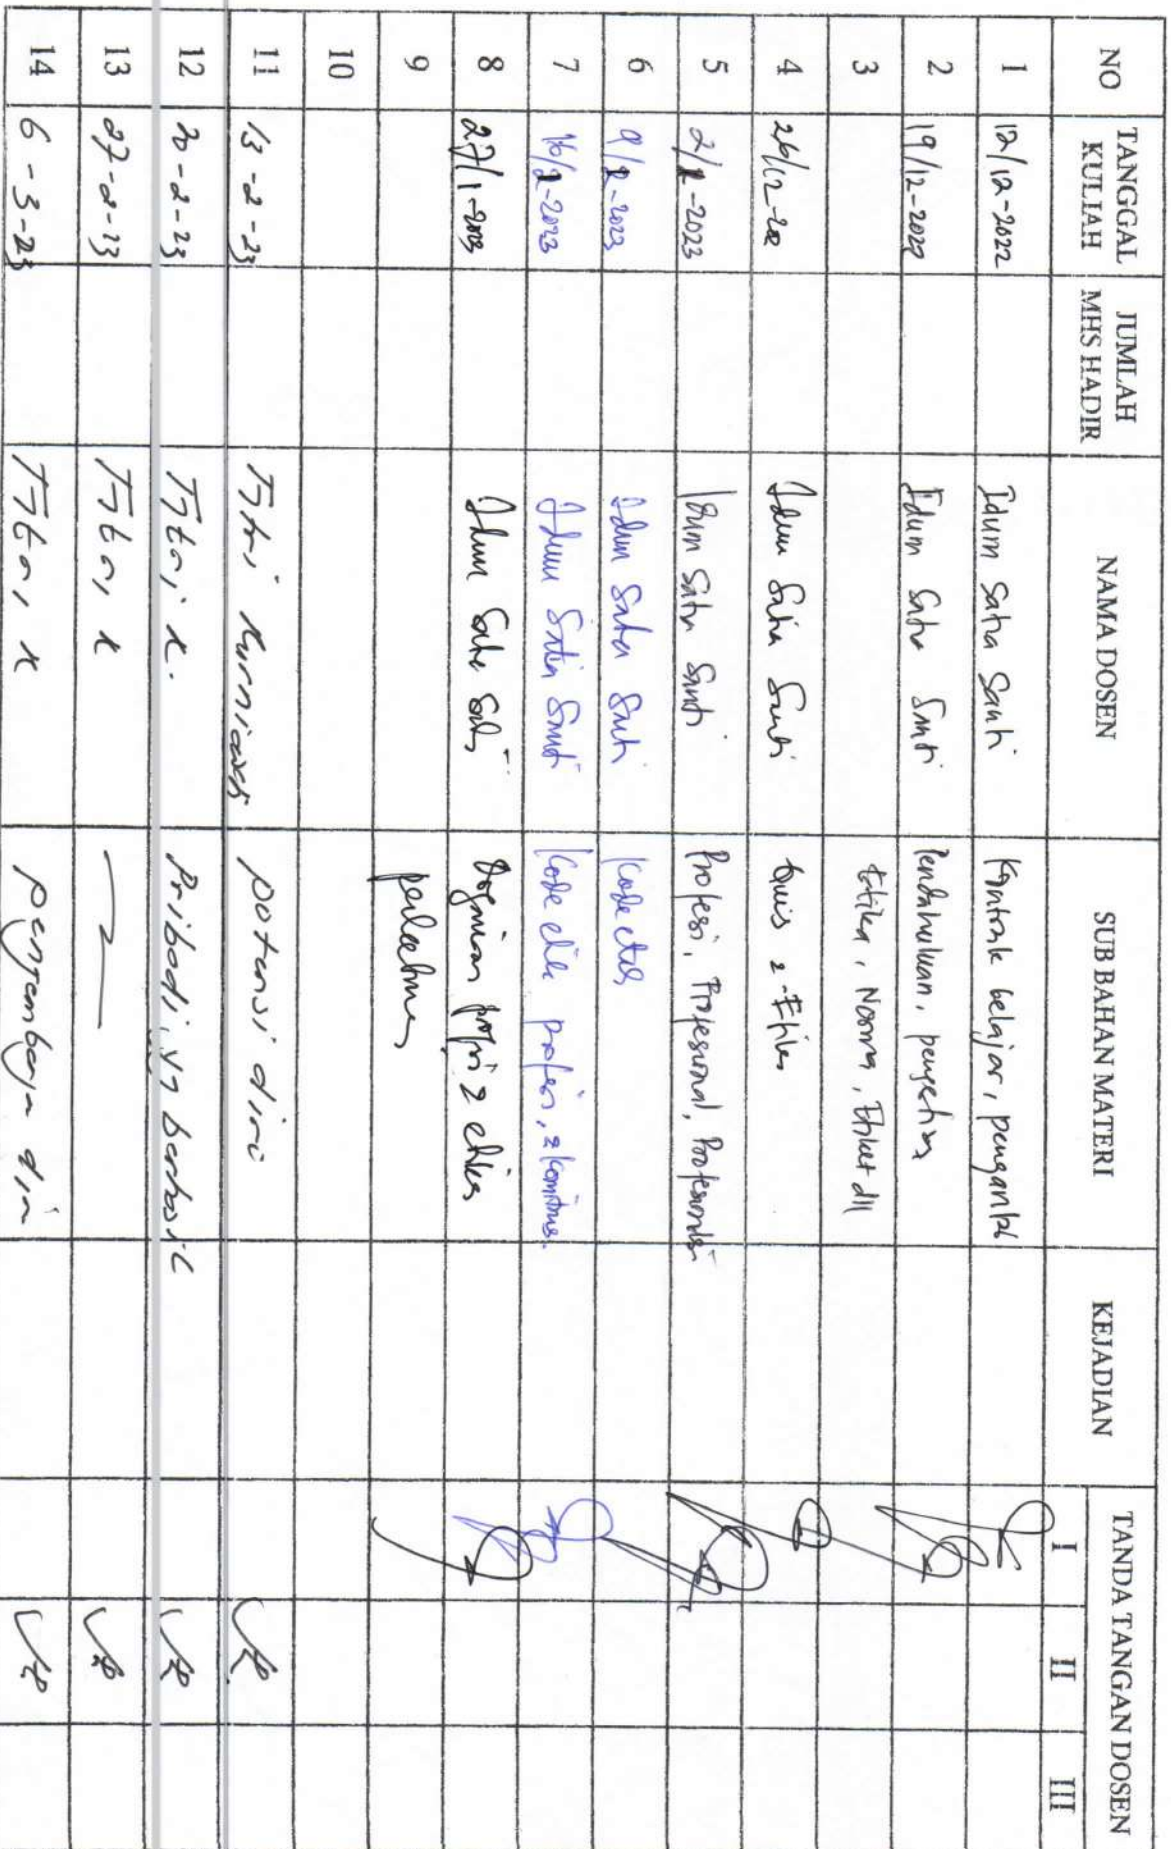 NO TANGGAL KULIAH JUMLAH MHS HADIR NAMA DOSEN SUB BAHAN MATERI KEJADIAN TANDA TANGAN DOSEN
I II III
1 12/12-2022 Idum Satia Santi Kontrak belajar, pengantar
2 19/12-2022 Idum Satia Santi Pendahuluan, pengertian
3 Etika, Norma, Etiket dll
4 26/12-22 Idum Satia Santi Quis 2-Etika
5 2/1-2023 Idum Satia Santi Profesi, Profesional, Profesionalis
6 9/1-2023 Idum Satia Santi Kode etik
7 16/1-2023 Idum Satia Santi Kode etik profesi,
8 27/1-2023 Idum Satia Santi profesi 2 etika
9
10
11 13-2-23 Titri Kurniawan potensi diri
12 20-2-23 Pribadi yg
13 27-2-23
14 6-3-23 diri